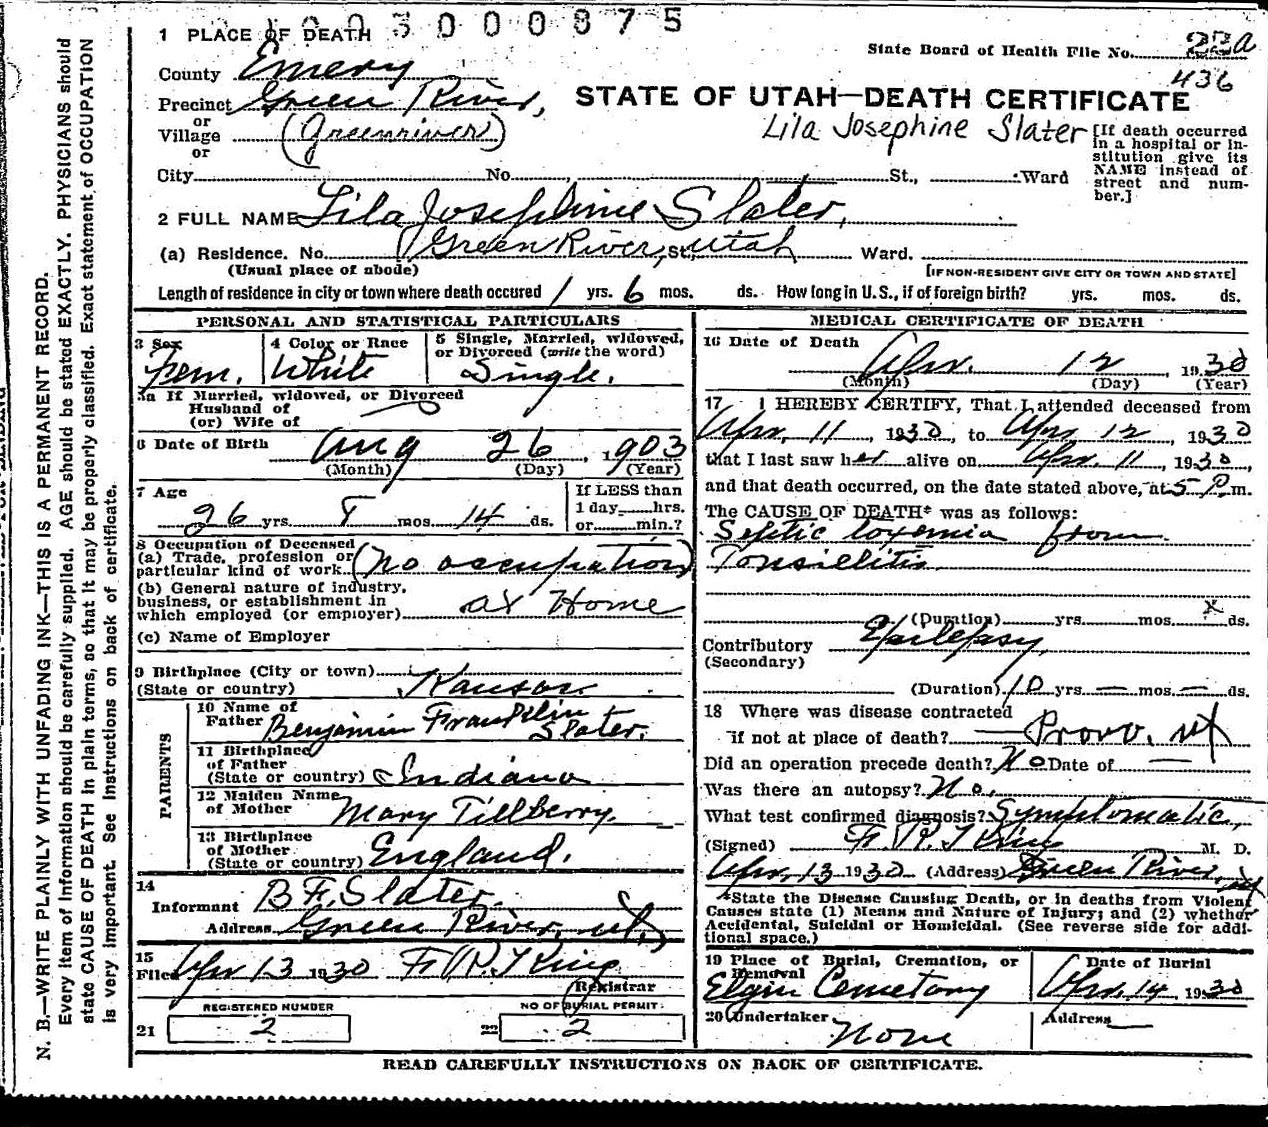 3000875
1 PLACE OF DEATH
State Board of Health File No. 22a
436
County Emery
Precinct Green River,
or
Village (Greenriver)
or
STATE OF UTAH—DEATH CERTIFICATE
Lila Josephine Slater
[If death occurred in a hospital or institution give its NAME instead of street and number.]
City No. St., Ward
2 FULL NAME Lila Josephine Slater,
(a) Residence. No. Green River, St., Utah Ward.
(Usual place of abode)
[IF NON-RESIDENT GIVE CITY OR TOWN AND STATE]
Length of residence in city or town where death occured 1 yrs. 6 mos. ds. How long in U.S., if of foreign birth? yrs. mos. ds.
PERSONAL AND STATISTICAL PARTICULARS
3 Sex Fem.
4 Color or Race White
5 Single, Married, widowed, or Divorced (write the word) Single.
5a If Married, widowed, or Divorced
Husband of
(or) Wife of
6 Date of Birth Aug 26, 1903
(Month) (Day) (Year)
7 Age
26 yrs. 7 mos. 14 ds.
If LESS than
1 day, hrs.
or min.?
8 Occupation of Deceased
(a) Trade, profession or
particular kind of work (No occupation)
(b) General nature of industry,
business, or establishment in
which employed (or employer) at Home
(c) Name of Employer
9 Birthplace (City or town)
(State or country) Kansas.
PARENTS
10 Name of
Father Benjamin Franklin Slater.
11 Birthplace
of Father
(State or country) Indiana
12 Maiden Name
of Mother Mary Tillberry.
13 Birthplace
of Mother
(State or country) England.
14
Informant B F. Slater.
Address Green River, ut.
15
Filed Apr 13 1930 F. R. King
Registrar
REGISTERED NUMBER
21 2
NO OF BURIAL PERMIT
22 2
MEDICAL CERTIFICATE OF DEATH
16 Date of Death
Apr. 12, 1930
(Month) (Day) (Year)
17 I HEREBY CERTIFY, That I attended deceased from
Apr. 11, 1930, to Apr 12, 1930
that I last saw her alive on Apr. 11, 1930,
and that death occurred, on the date stated above, at 5 P.m.
The CAUSE OF DEATH* was as follows:
Septic toxemia from
Tonsillitis
(Duration) yrs. mos. x ds.
Contributory Epilepsy,
(Secondary)
(Duration) 10 yrs — mos. — ds.
18 Where was disease contracted
if not at place of death? — Provo, ut
Did an operation precede death? No Date of —
Was there an autopsy? No.
What test confirmed diagnosis? Symptomatic,
(Signed) King M. D.
Apr, 13 1930 (Address) Green River, ut
*State the Disease Causing Death, or in deaths from Violent
Causes state (1) Means and Nature of Injury; and (2) whether
Accidental, Suicidal or Homicidal. (See reverse side for addi-
tional space.)
19 Place of Burial, Cremation, or
Removal
Elgin Cemetary
Date of Burial
Apr. 14 1930
20 Undertaker
None
Address —
READ CAREFULLY INSTRUCTIONS ON BACK OF CERTIFICATE.
N. B.—WRITE PLAINLY WITH UNFADING INK—THIS IS A PERMANENT RECORD.
Every item of information should be carefully supplied. AGE should be stated EXACTLY. PHYSICIANS should
state CAUSE OF DEATH in plain terms, so that it may be properly classified. Exact statement of OCCUPATION
is very important. See Instructions on back of certificate.